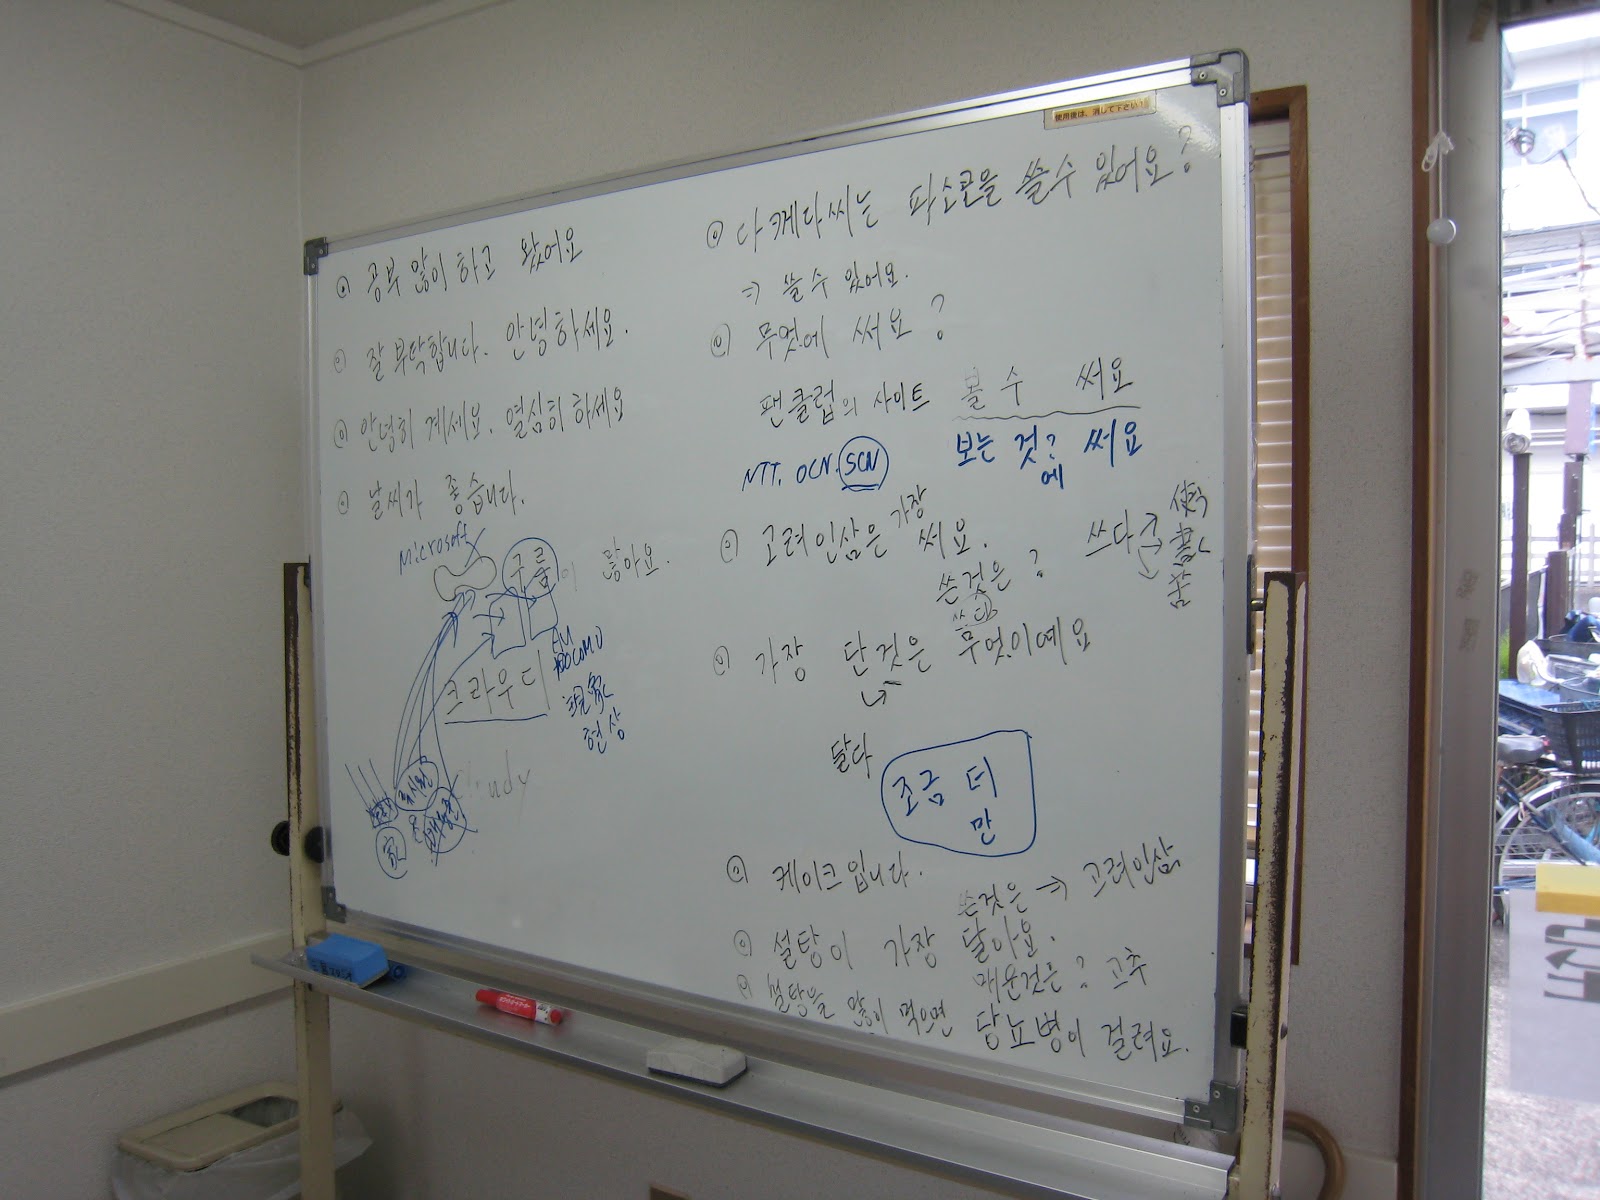 使用後は、消して下さい!
공부 많이 하고 왔어요
잘 부탁합니다. 안녕하세요.
안녕히 계세요. 열심히 하세요
날씨가 좋습니다.
Microsoft
구름이 많아요.
AU
DOCOMO
크라우디
現象
현상
다케다씨는 파소콘을 쓸수 있어요?
⇒ 쓸수 있어요.
무엇에 써요?
팬클럽의 사이트 볼 수 써요
보는 것? 써요
에
NTT. OCN. SCN
가장
고려인삼은 써요.
쓰다 → 使う
書く
苦
쓴것은?
쓰다
가장 단것은 무엇이예요
달다
조금 더
만
케이크입니다.
쓴것은 ⇒ 고려인삼
설탕이 가장 달아요.
매운것은? 고추
설탕을 많이 먹으면 당뇨병이 걸려요.